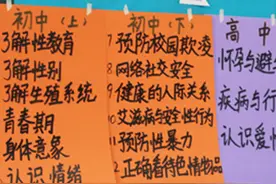 初中（上）
了解性教育
了解性别
了解生殖系统
青春期
身体意象
认识情绪
初中（下）
7 预防校园欺凌
8 网络社交安全
9 健康的人际关系
10 艾滋病与安全性行为
11 预防性暴力
正确看待色情物品
高中
怀孕与避
疾病与行
认识爱